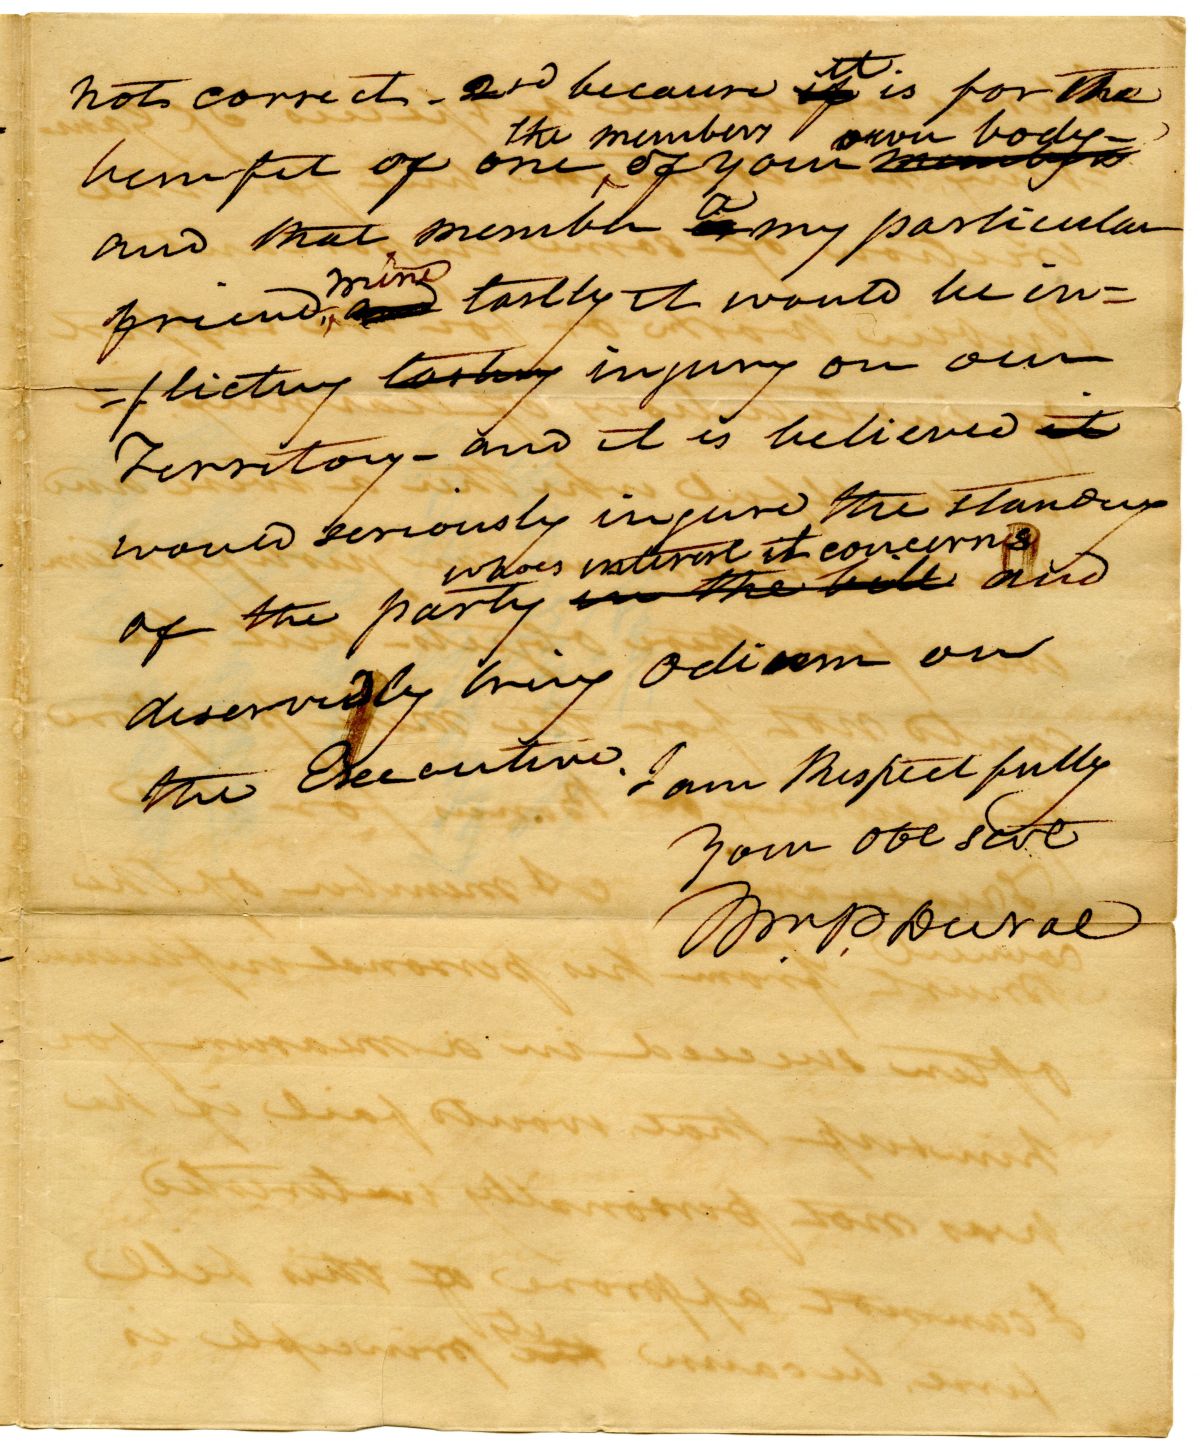 not correct - 2nd because it it is for the
the members own body-
benefit of one, of your members
and that member is a my particular
mine
friend, and lastly it would be in=
=flicting lasting injury on our
Territory - and it is believed it
would seriously injure the standing
whoes interest it concerns
of the party in the bill and
deservedly bring odium on
the Executive. I am Respectfully
Your Obt Servt
Wm P. Duval